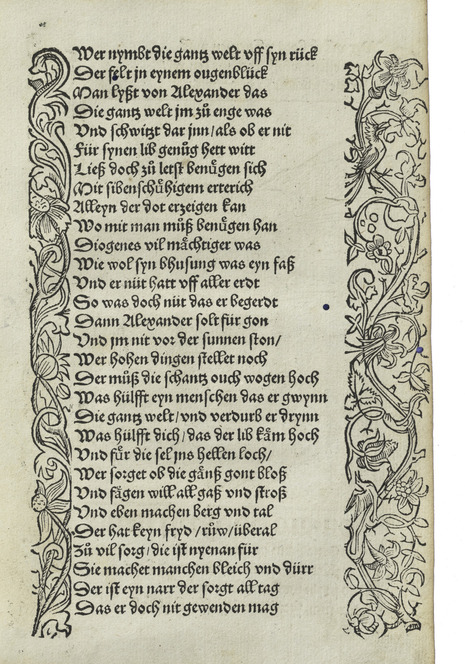 Wer nymbt die gantz welt vff syn rück
Der felt jn eynem ougenblück
Man lyßt von Alexander das
Die gantz welt jm zů enge was
Vnd schwitzt dar jnn / als ob er nit
Für synen lib genůg hett witt
Ließ doch zů letst benu̇gen sich
Mit sibenschůhigem erterich
Alleyn der dot erzeigen kan
Wo mit man můß benu̇gen han
Diogenes vil mächtiger was
Wie wol syn bhusung was eyn faß
Vnd er nüt hatt vff aller erdt
So was doch nüt das er begerdt
Dann Alexander solt für gon
Vnd jm nit vor der sunnen ston /
Wer hohen dingen stellet noch
Der můß die schantz ouch wogen hoch
Was hülfft eyn menschen das er gwynn
Die gantz welt / vnd verdurb er drynn
Was hülfft dich / das der lib käm hoch
Vnd für die sel jns hellen loch /
Wer sorget ob die gänß gont bloß
Vnd fägen will all gaß vnd stroß
Vnd eben machen berg vnd tal
Der hat keyn fryd / růw / überal
Zů vil sorg / die ist nyenan für
Sie machet manchen bleich vnd dürr
Der ist eyn narr der sorgt all tag
Das er doch nit gewenden mag